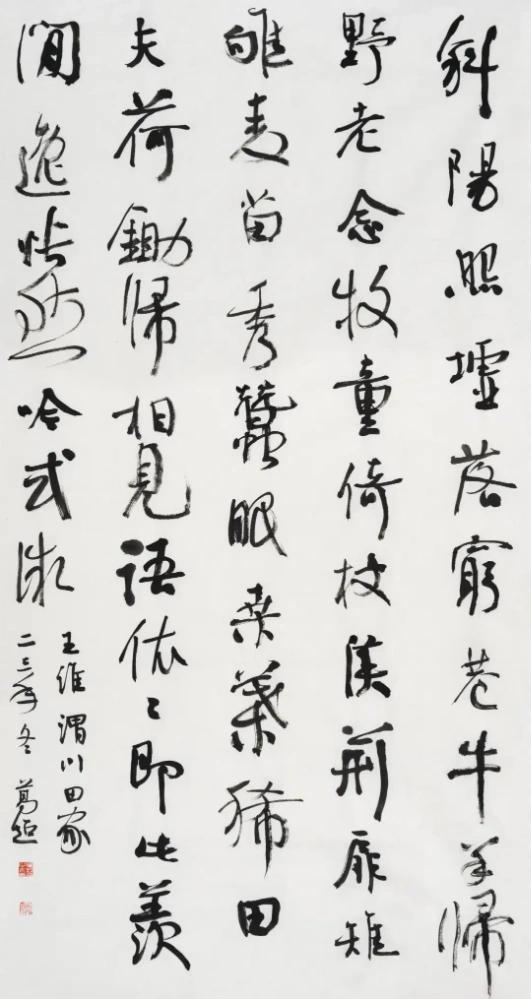 斜陽照墟落窮巷牛羊歸
野老念牧童倚杖候荊扉雉
雊麦苗秀蠶眠桑葉稀田
夫荷鋤歸相見語依〻即此羨
閒逸悵然吟式微
王維渭川田家
二三年冬 葛